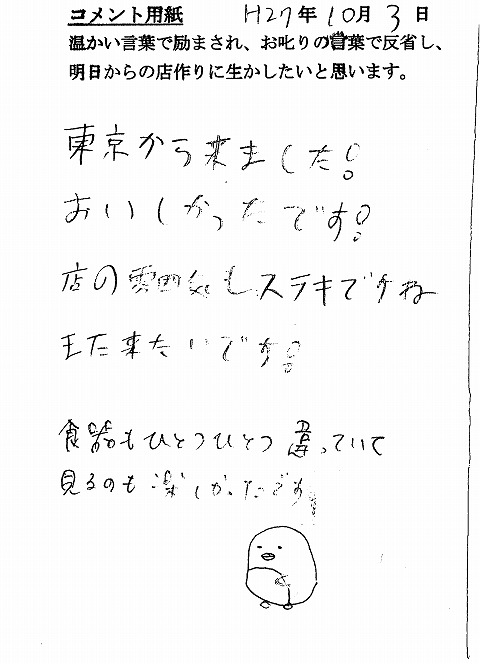 コメント用紙 H27年10月3日
温かい言葉で励まされ、お叱りの言葉で反省し、
明日からの店作りに生かしたいと思います。
東京から来ました!
おいしかったです!
店の雰囲気もステキですね
また来たいです!
食器もひとつひとつ違っていて
見るのも楽しかったです!